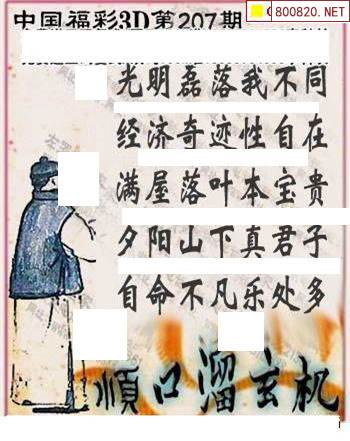 800820.NET
中国福彩3D第207期
光明磊落我不同
经济奇迹性自在
满屋落叶本宝贵
夕阳山下真君子
自命不凡乐处多
順口溜玄机